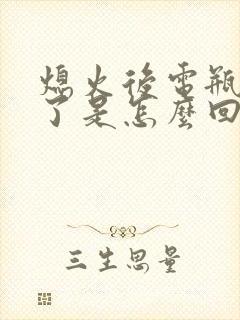 熄火後電瓶
了是怎麼回
三生思量